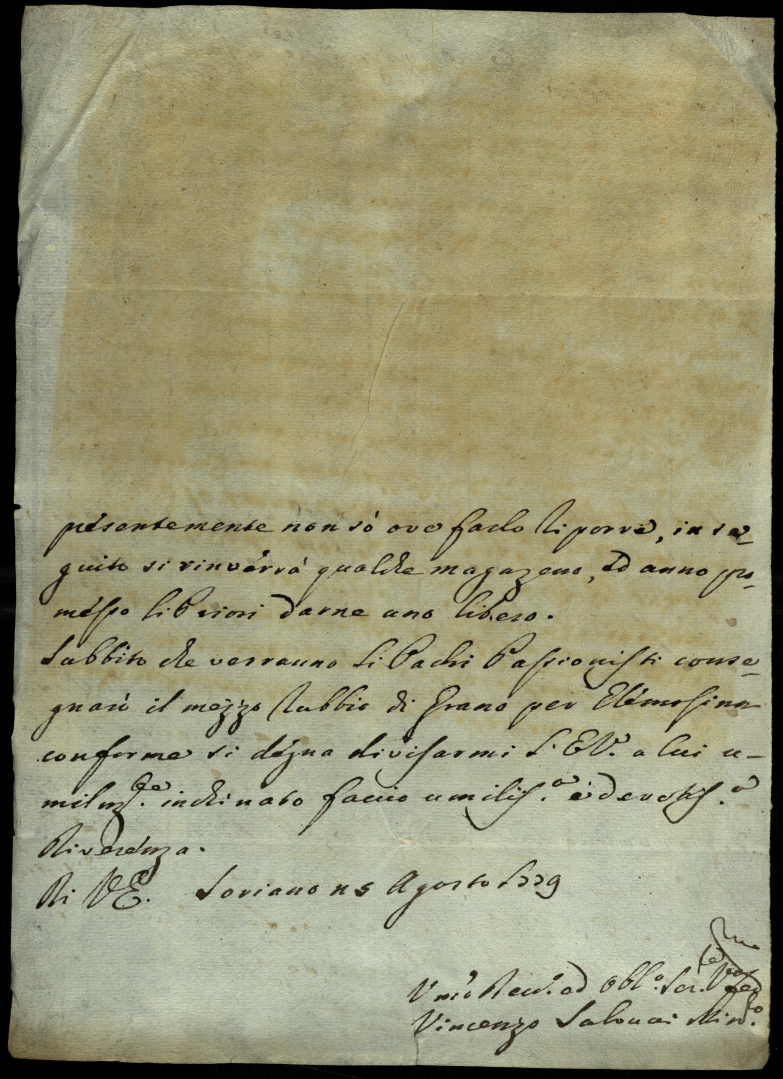 presentemente non sò ove farlo riporre, in se-
guito si rinverrà qualche magazeno, ed anno pro-
messo li Priori darne uno libero.
Subbito che verranno li Padri Passionisti conse-
gnarò il mezzo rubbio di Grano per Elemosina
conforme si degna divisarmi L'E.V. a lui u-
milm.te inchinato faccio umilis.a e devotis.a
Riverenza.
Di V.E. Soriano 15 Agosto 1779
Um.o Dev.o ed Obbl.o Ser.
Vincenzo Min.o